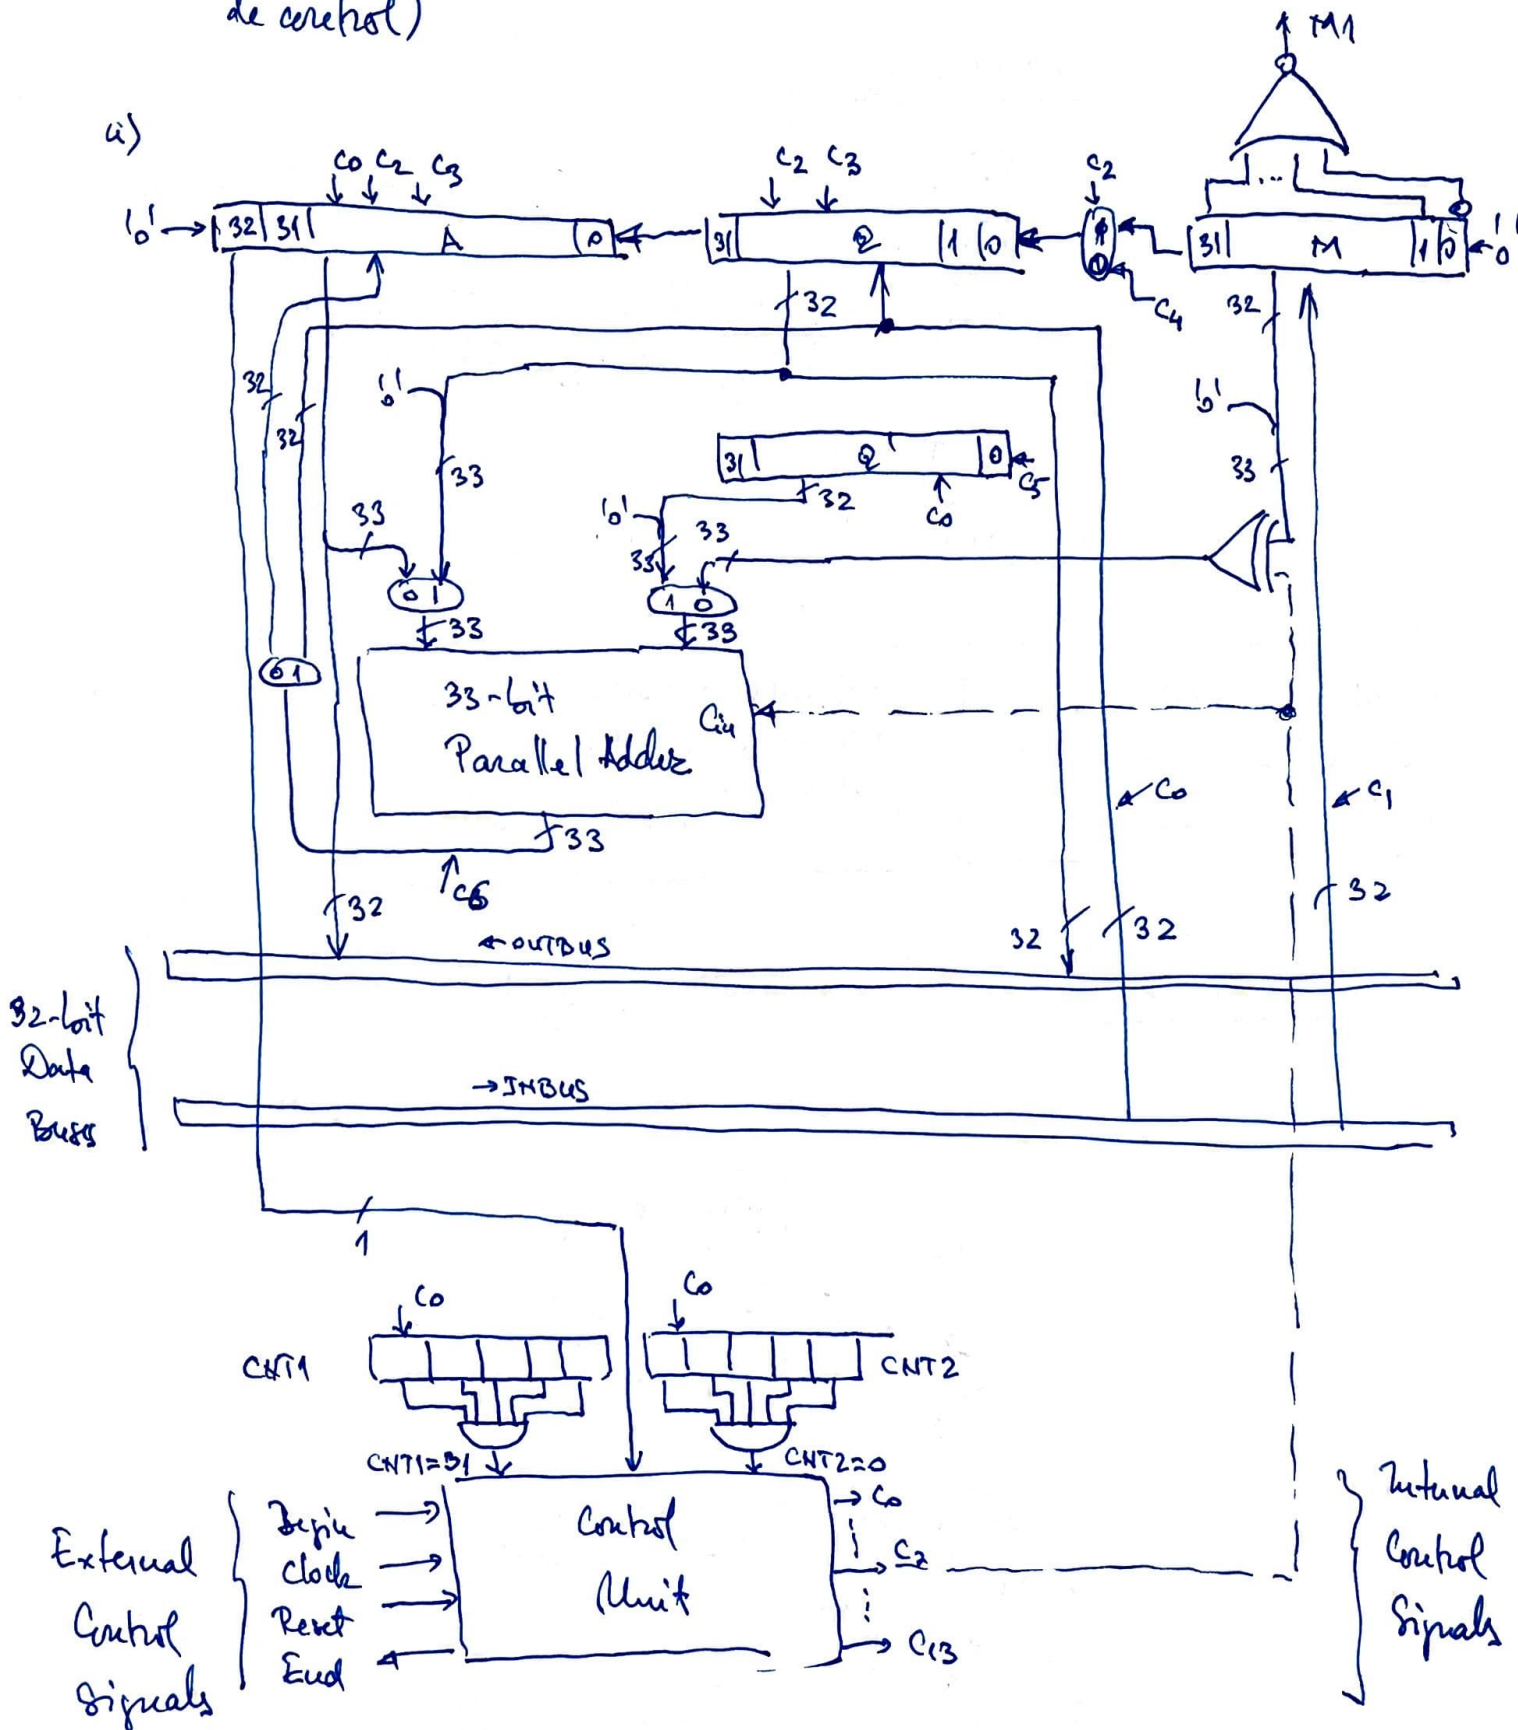 de control)
M1
a)
C0 C2 C3
C2 C3
C2
'0' 32 31 A 0
31 Q 1 0
1
0
31 M 1 0 '0'
C4
32
32
32
32
'0'
'0'
33
31 Q' 0 C5
32
C0
33
33
'0'
33
33
0 1
1 0
33
33
0 1
33-bit
Parallel Adder
Cin
C0
C1
33
C6
32
32
32
32
← OUTBUS
32-bit
Data
Buses
→ INBUS
1
C0
C0
CNT1
CNT2
CNT1=31
CNT2=0
External
Control
Signals
Begin
Clock
Reset
End
Control
Unit
C0
C2
C13
Internal
Control
Signals